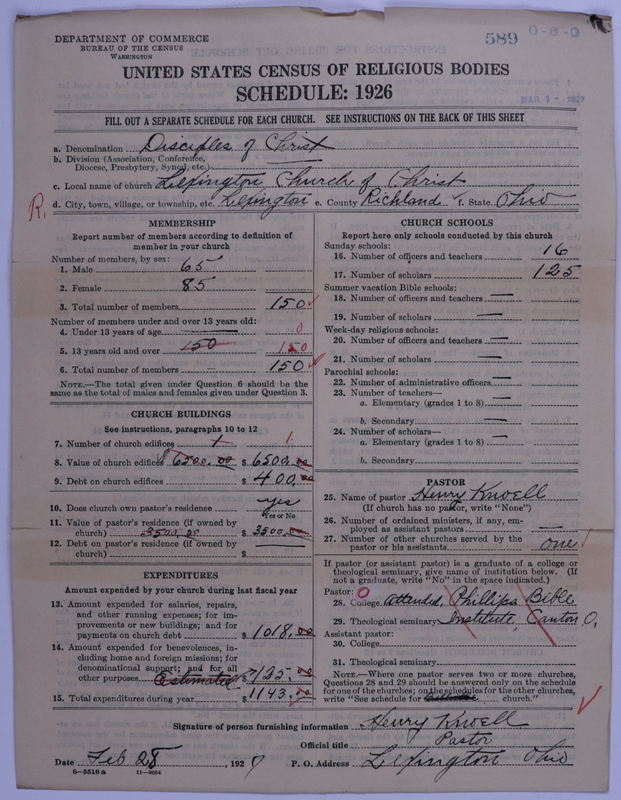 DEPARTMENT OF COMMERCE
BUREAU OF THE CENSUS
WASHINGTON
589
0-8-0
MAR 3 - 1927
UNITED STATES CENSUS OF RELIGIOUS BODIES
SCHEDULE: 1926
FILL OUT A SEPARATE SCHEDULE FOR EACH CHURCH. SEE INSTRUCTIONS ON THE BACK OF THIS SHEET
a. Denomination Disciples of Christ
b. Division (Association, Conference, Diocese, Presbytery, Synod, etc.)
c. Local name of church Lexington Church of Christ
R. d. City, town, village, or township, etc. Lexington e. County Richland f. State Ohio
MEMBERSHIP
Report number of members according to definition of member in your church
Number of members, by sex:
1. Male 65
2. Female 85
3. Total number of members 150
Number of members under and over 13 years old:
4. Under 13 years of age 0
5. 13 years old and over 150 150
6. Total number of members 150
NOTE.—The total given under Question 6 should be the same as the total of males and females given under Question 3.
CHURCH BUILDINGS
See instructions, paragraphs 10 to 12
7. Number of church edifices 1 1
8. Value of church edifices $6500.00 $6500.00
9. Debt on church edifices $400.00
10. Does church own pastor's residence yes
Yes or No
11. Value of pastor's residence (if owned by church) 3500.00 $3500.00
12. Debt on pastor's residence (if owned by church) $
EXPENDITURES
Amount expended by your church during last fiscal year
13. Amount expended for salaries, repairs, and other running expenses; for improvements or new buildings; and for payments on church debt $1018.00
14. Amount expended for benevolences, including home and foreign missions; for denominational support; and for all other purposes Estimated $125.00
15. Total expenditures during year $1143.00
CHURCH SCHOOLS
Report here only schools conducted by this church
Sunday schools:
16. Number of officers and teachers 16
17. Number of scholars 125
Summer vacation Bible schools:
18. Number of officers and teachers —
19. Number of scholars —
Week-day religious schools:
20. Number of officers and teachers —
21. Number of scholars —
Parochial schools:
22. Number of administrative officers —
23. Number of teachers—
a. Elementary (grades 1 to 8) —
b. Secondary —
24. Number of scholars—
a. Elementary (grades 1 to 8) —
b. Secondary
PASTOR
25. Name of pastor Henry Knoell
(If church has no pastor, write "None")
26. Number of ordained ministers, if any, employed as assistant pastors —
27. Number of other churches served by the pastor or his assistants one
If pastor (or assistant pastor) is a graduate of a college or theological seminary, give name of institution below. (If not a graduate, write "No" in the space indicated.)
Pastor: 0
28. College attended, Phillips Bible
29. Theological seminary Institute, Canton O.
Assistant pastor:
30. College
31. Theological seminary
NOTE.—Where one pastor serves two or more churches, Questions 28 and 29 should be answered only on the schedule for one of the churches; on the schedules for the other churches, write "See schedule for church."
Signature of person furnishing information Henry Knoell
Official title Pastor
Date Feb 28, 1927 P. O. Address Lexington Ohio
8—5518 a 11—9054